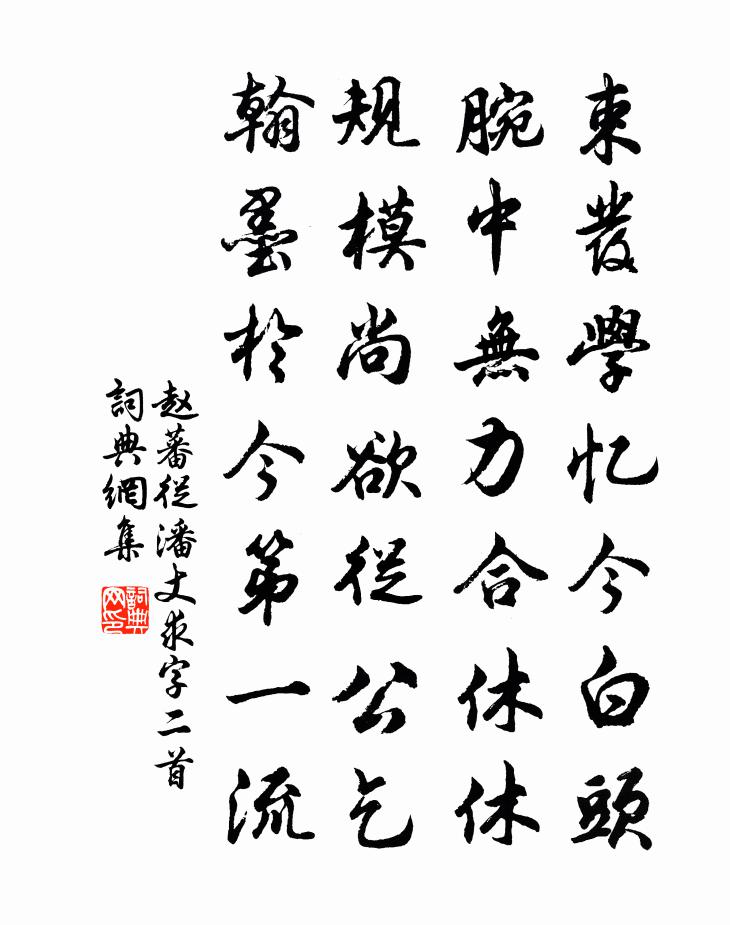 束發學忆今白頭
腕中無力合休休
規模尚欲從公乞
翰墨於今第一流
赵蕃從潘丈求字二首
詞典網集
詞典网印